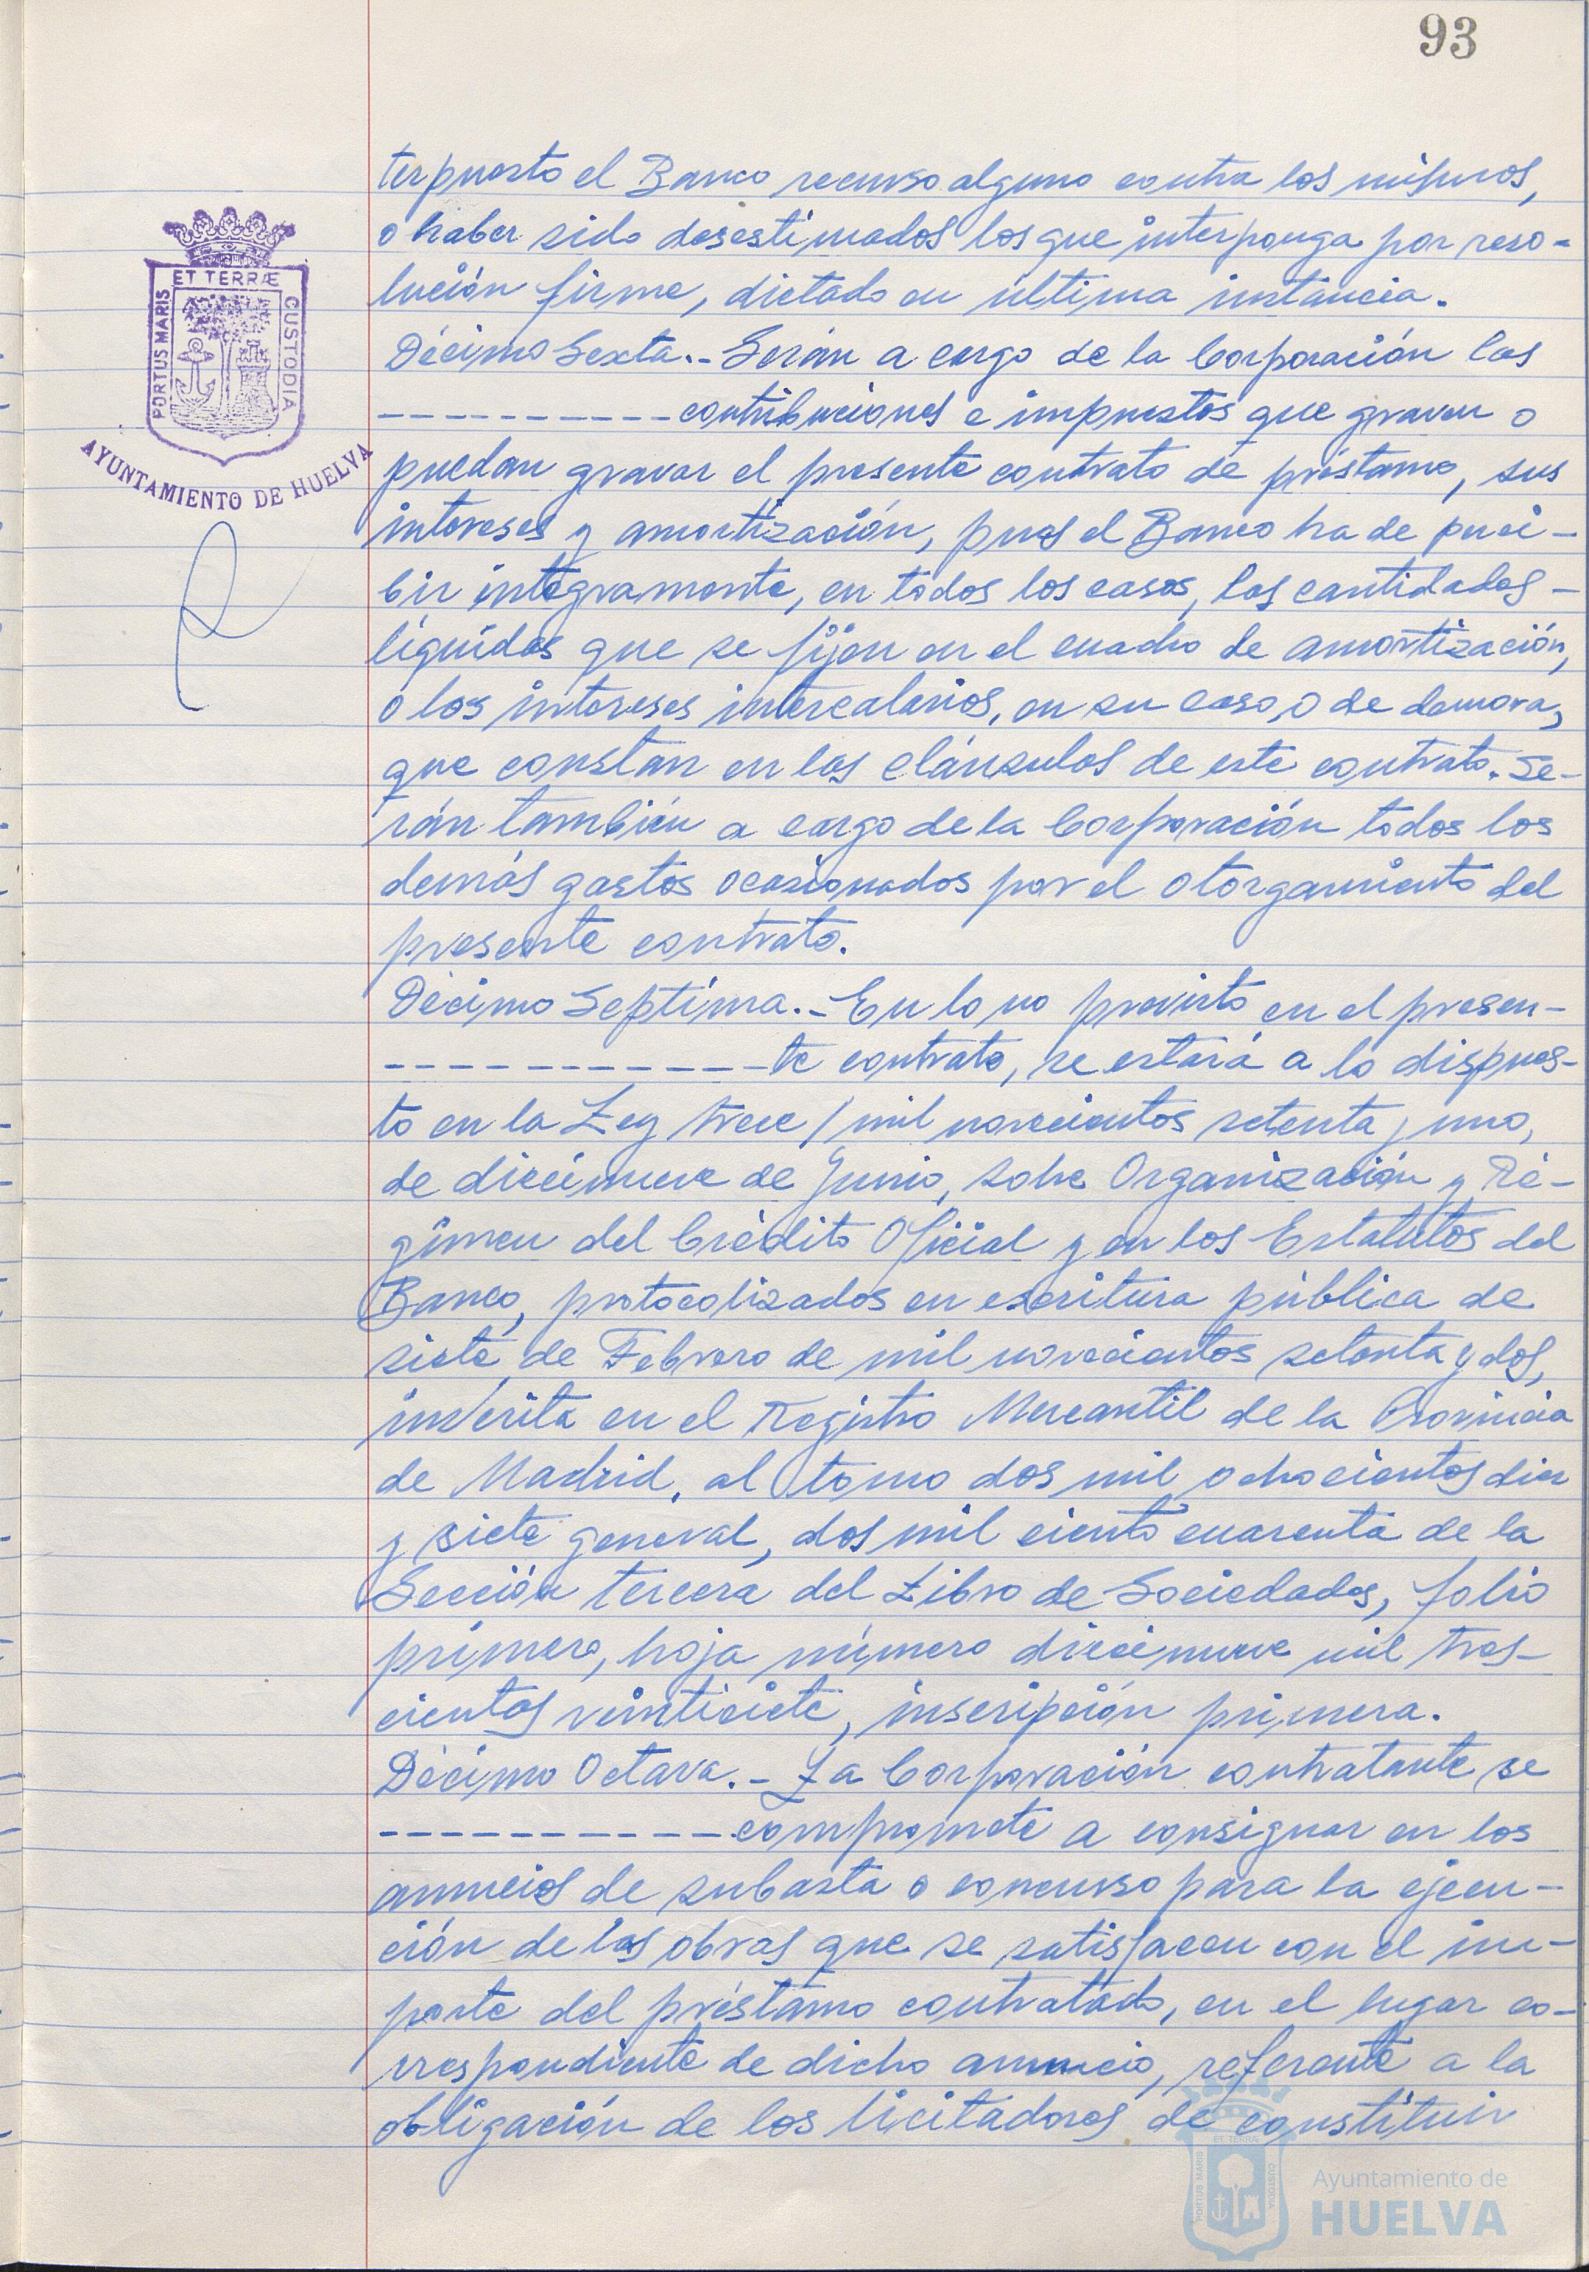 93
terpuesto el Banco recurso alguno contra los mismos,
o haber sido desestimados los que interponga por reso-
lución firme, dictado en última instancia.
Décimo Sexta.- Serán a cargo de la Corporación las
---------- contribuciones e impuestos que graven o
puedan gravar el presente contrato de préstamo, sus
intereses y amortización, pues el Banco ha de perci-
bir íntegramente, en todos los casos, las cantidades -
líquidas que se fijen en el cuadro de amortización,
o los intereses intercalarios, en su caso, o de demora,
que constan en las cláusulas de este contrato. Se-
rán también a cargo de la Corporación todos los
demás gastos ocasionados por el otorgamiento del
presente contrato.
Décimo Septima.- En lo no previsto en el presen-
------------ te contrato, se estará a lo dispues-
to en la Ley trece / mil novecientos setenta y uno,
de diecinueve de Junio, sobre Organización y Ré-
gimen del Crédito Oficial y en los Estatutos del
Banco, protocolizados en escritura pública de
siete de Febrero de mil novecientos setenta y dos,
inscrita en el Registro Mercantil de la Provincia
de Madrid, al tomo dos mil ochocientos diez
y siete general, dos mil ciento cuarenta de la
Sección tercera del Libro de Sociedades, folio
primero, hoja número diecinueve mil tres-
cientos veintisiete, inscripción primera.
Décimo Octava.- La Corporación contratante se
------------ compromete a consignar en los
anuncios de subasta o concurso para la ejecu-
ción de las obras que se satisfacen con el im-
porte del préstamo contratado, en el lugar co-
rrespondiente de dicho anuncio, referente a la
obligación de los licitadores de constituir
PORTUS MARIS ET TERRÆ CUSTODIA
AYUNTAMIENTO DE HUELVA
PORTUS MARIS ET TERRÆ CUSTODIA
Ayuntamiento de
HUELVA